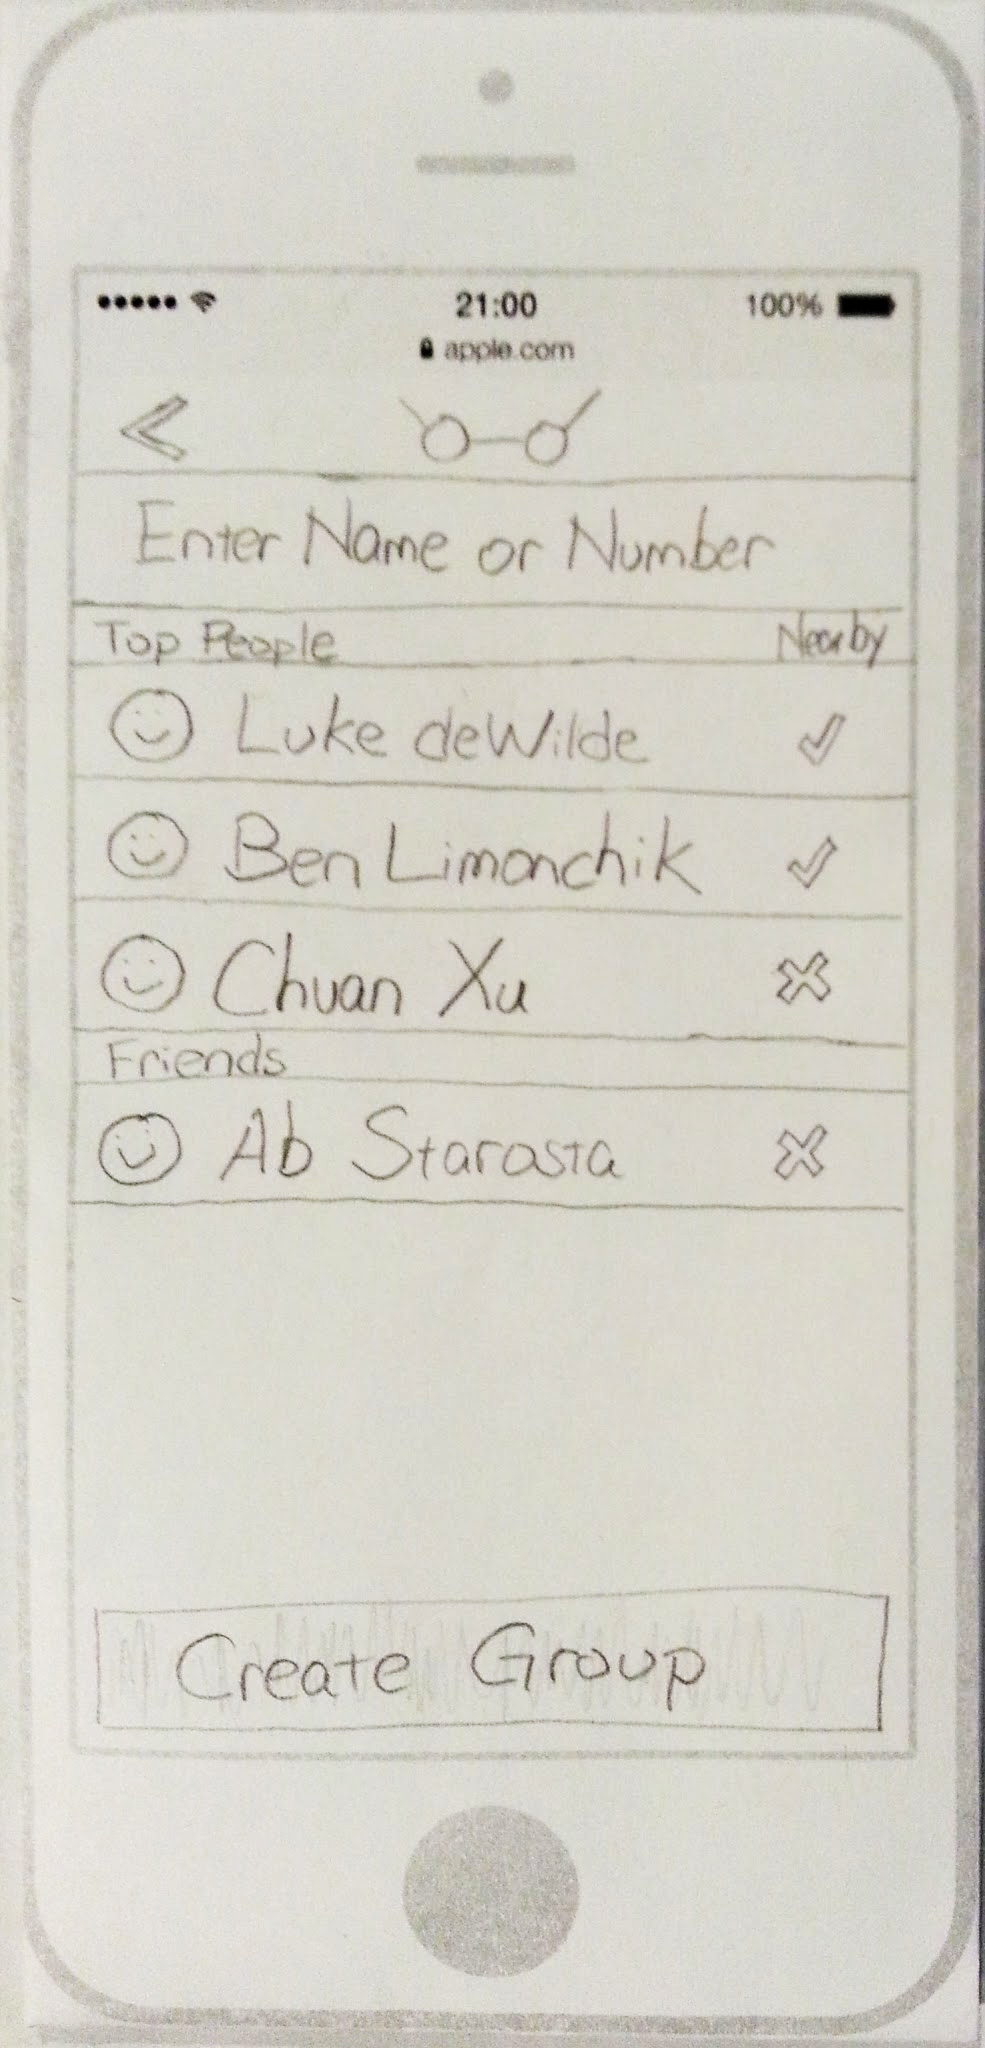 21:00 100%
apple.com
Enter Name or Number
Top People Nearby
Luke deWilde
Ben Limonchik
Chuan Xu
Friends
Ab Starosta
Create Group